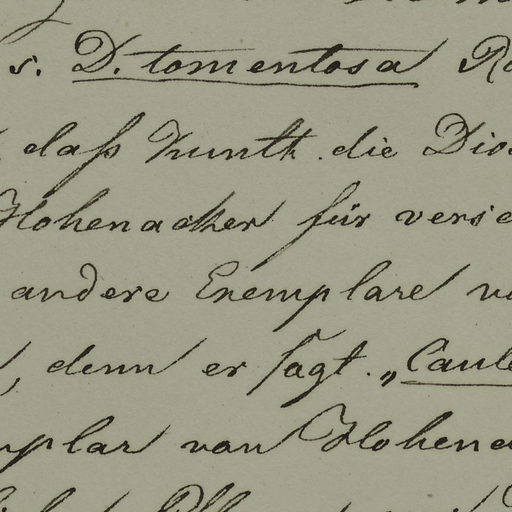 s. D. tomentosa Ro
daſs Kunth. die Dios
Hohenacker für versc
andere Exemplare vo
, denn er ſagt. „Caule
mplar von Hohena